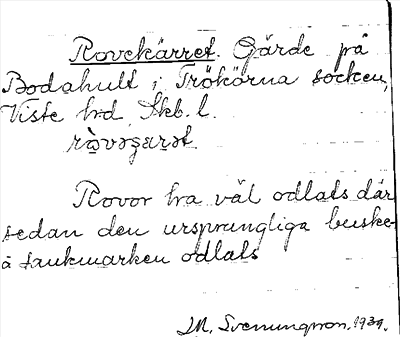 Rovekärret. Gärde på
Bodahult i Trökörna socken,
Viste hd Skb. l.

Rovor ha väl odlats där
sedan den ursprungliga buske-
å odlats
M. Svenungsson. 1939.